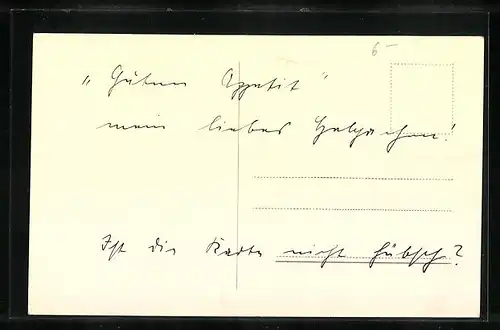 6–
„Guten Appetit"
mein liebes
Ist die Karte nicht hübsch?